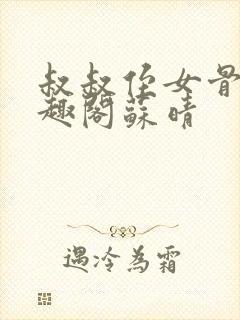 叔叔侄女骨
趣阁蘇晴
遇冷為霜